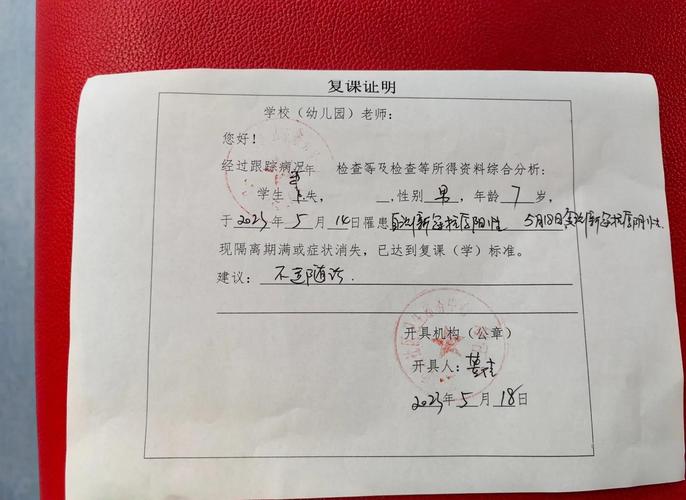 复课证明
学校（幼儿园）老师：
您好！
经过跟踪病况 年 检查等及检查等所得资料综合分析：
学生 ，性别 男 ，年龄 7 岁，
于 2023 年 5 月 14 日罹患 自测新冠抗原阳性 5月18日复测新冠抗原阴性
现隔离期满或症状消失，已达到复课（学）标准。
建议： 不适随诊.
开具机构（公章）
开具人：
2023年 5 月 18 日